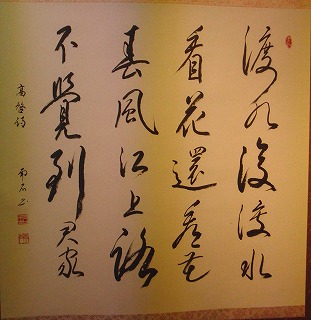 渡水復渡水
看花還看花
春風江上路
不覺到君家
高啓詩